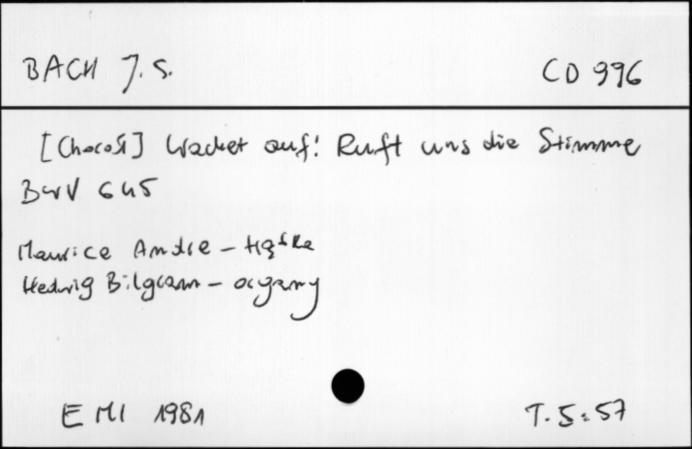 BACH J. S. CD 996
[Chorał] Wachet auf! Ruft uns die Stimme
BWV 645
Maurice Andre - trąbka
Hedwig Bilgram - organy
EMI 1981 T. 5:57